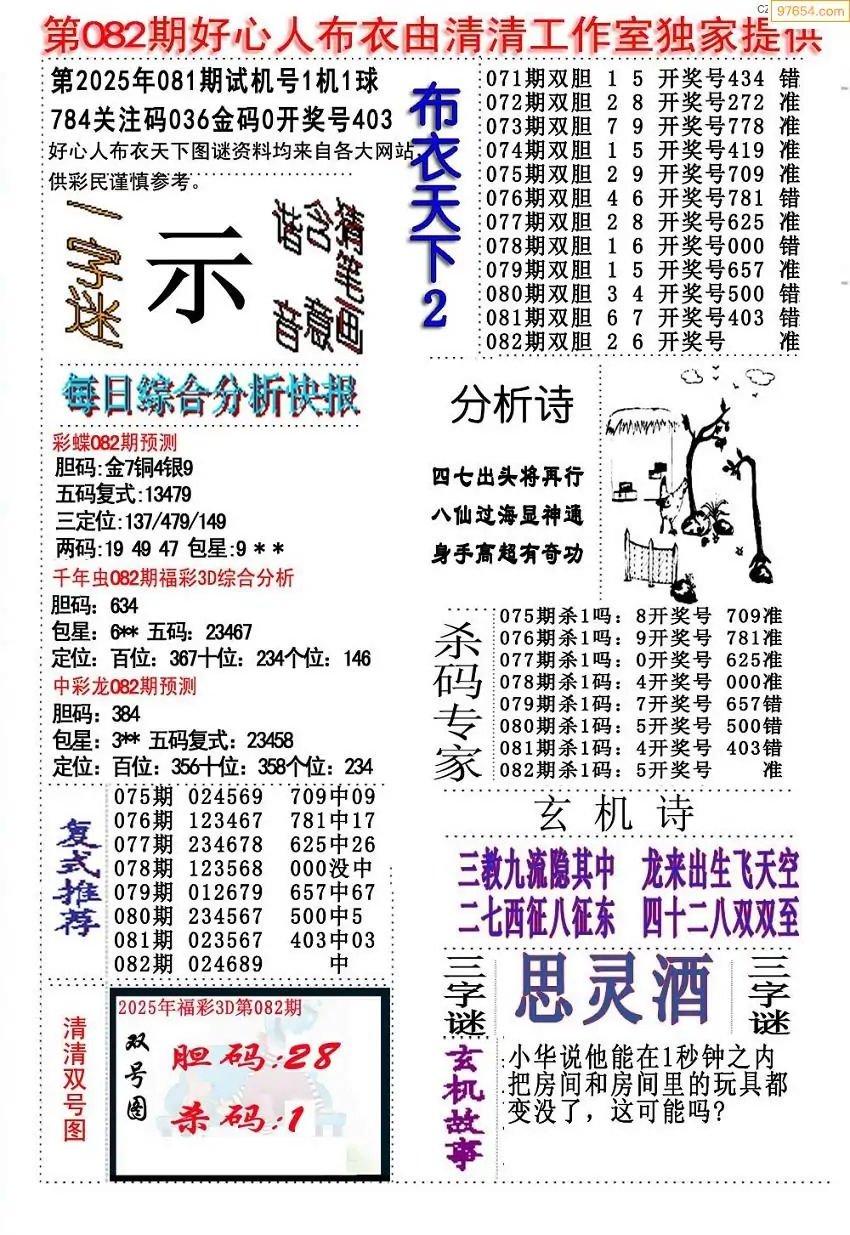 CZ
97654.com
第082期好心人布衣由清清工作室独家提供
第2025年081期试机号1机1球
784关注码036金码0开奖号403
好心人布衣天下图谜资料均来自各大网站,
供彩民谨慎参考。
一字迷
示
猜笔画
含意
谐音
每日综合分析快报
彩蝶082期预测
胆码:金7铜4银9
五码复式:13479
三定位:137/479/149
两码:19 49 47 包星:9 * *
千年虫082期福彩3D综合分析
胆码: 634
包星: 6** 五码: 23467
定位: 百位: 367十位: 234个位: 146
中彩龙082期预测
胆码: 384
包星: 3** 五码复式: 23458
定位: 百位: 356十位: 358个位: 234
复式推荐
075期 024569 709中09
076期 123467 781中17
077期 234678 625中26
078期 123568 000没中
079期 012679 657中67
080期 234567 500中5
081期 023567 403中03
082期 024689 中
清清双号图
2025年福彩3D第082期
双号图
胆码:28
杀码:1
布衣天下2
071期双胆 1 5 开奖号434 错
072期双胆 2 8 开奖号272 准
073期双胆 7 9 开奖号778 准
074期双胆 1 5 开奖号419 准
075期双胆 2 9 开奖号709 准
076期双胆 4 6 开奖号781 错
077期双胆 2 8 开奖号625 准
078期双胆 1 6 开奖号000 错
079期双胆 1 5 开奖号657 准
080期双胆 3 4 开奖号500 错
081期双胆 6 7 开奖号403 错
082期双胆 2 6 开奖号 准
分析诗
四七出头将再行
八仙过海显神通
身手高超有奇功
杀码专家
075期杀1吗: 8开奖号 709准
076期杀1吗: 9开奖号 781准
077期杀1吗: 0开奖号 625准
078期杀1码: 4开奖号 000准
079期杀1码: 7开奖号 657错
080期杀1码: 5开奖号 500错
081期杀1码: 4开奖号 403错
082期杀1码: 5开奖号 准
玄机诗
三教九流隐其中 龙来出生飞天空
二七西征八征东 四十二八双双至
三字谜
思灵酒
三字谜
玄机故事
小华说他能在1秒钟之内
把房间和房间里的玩具都
变没了，这可能吗?